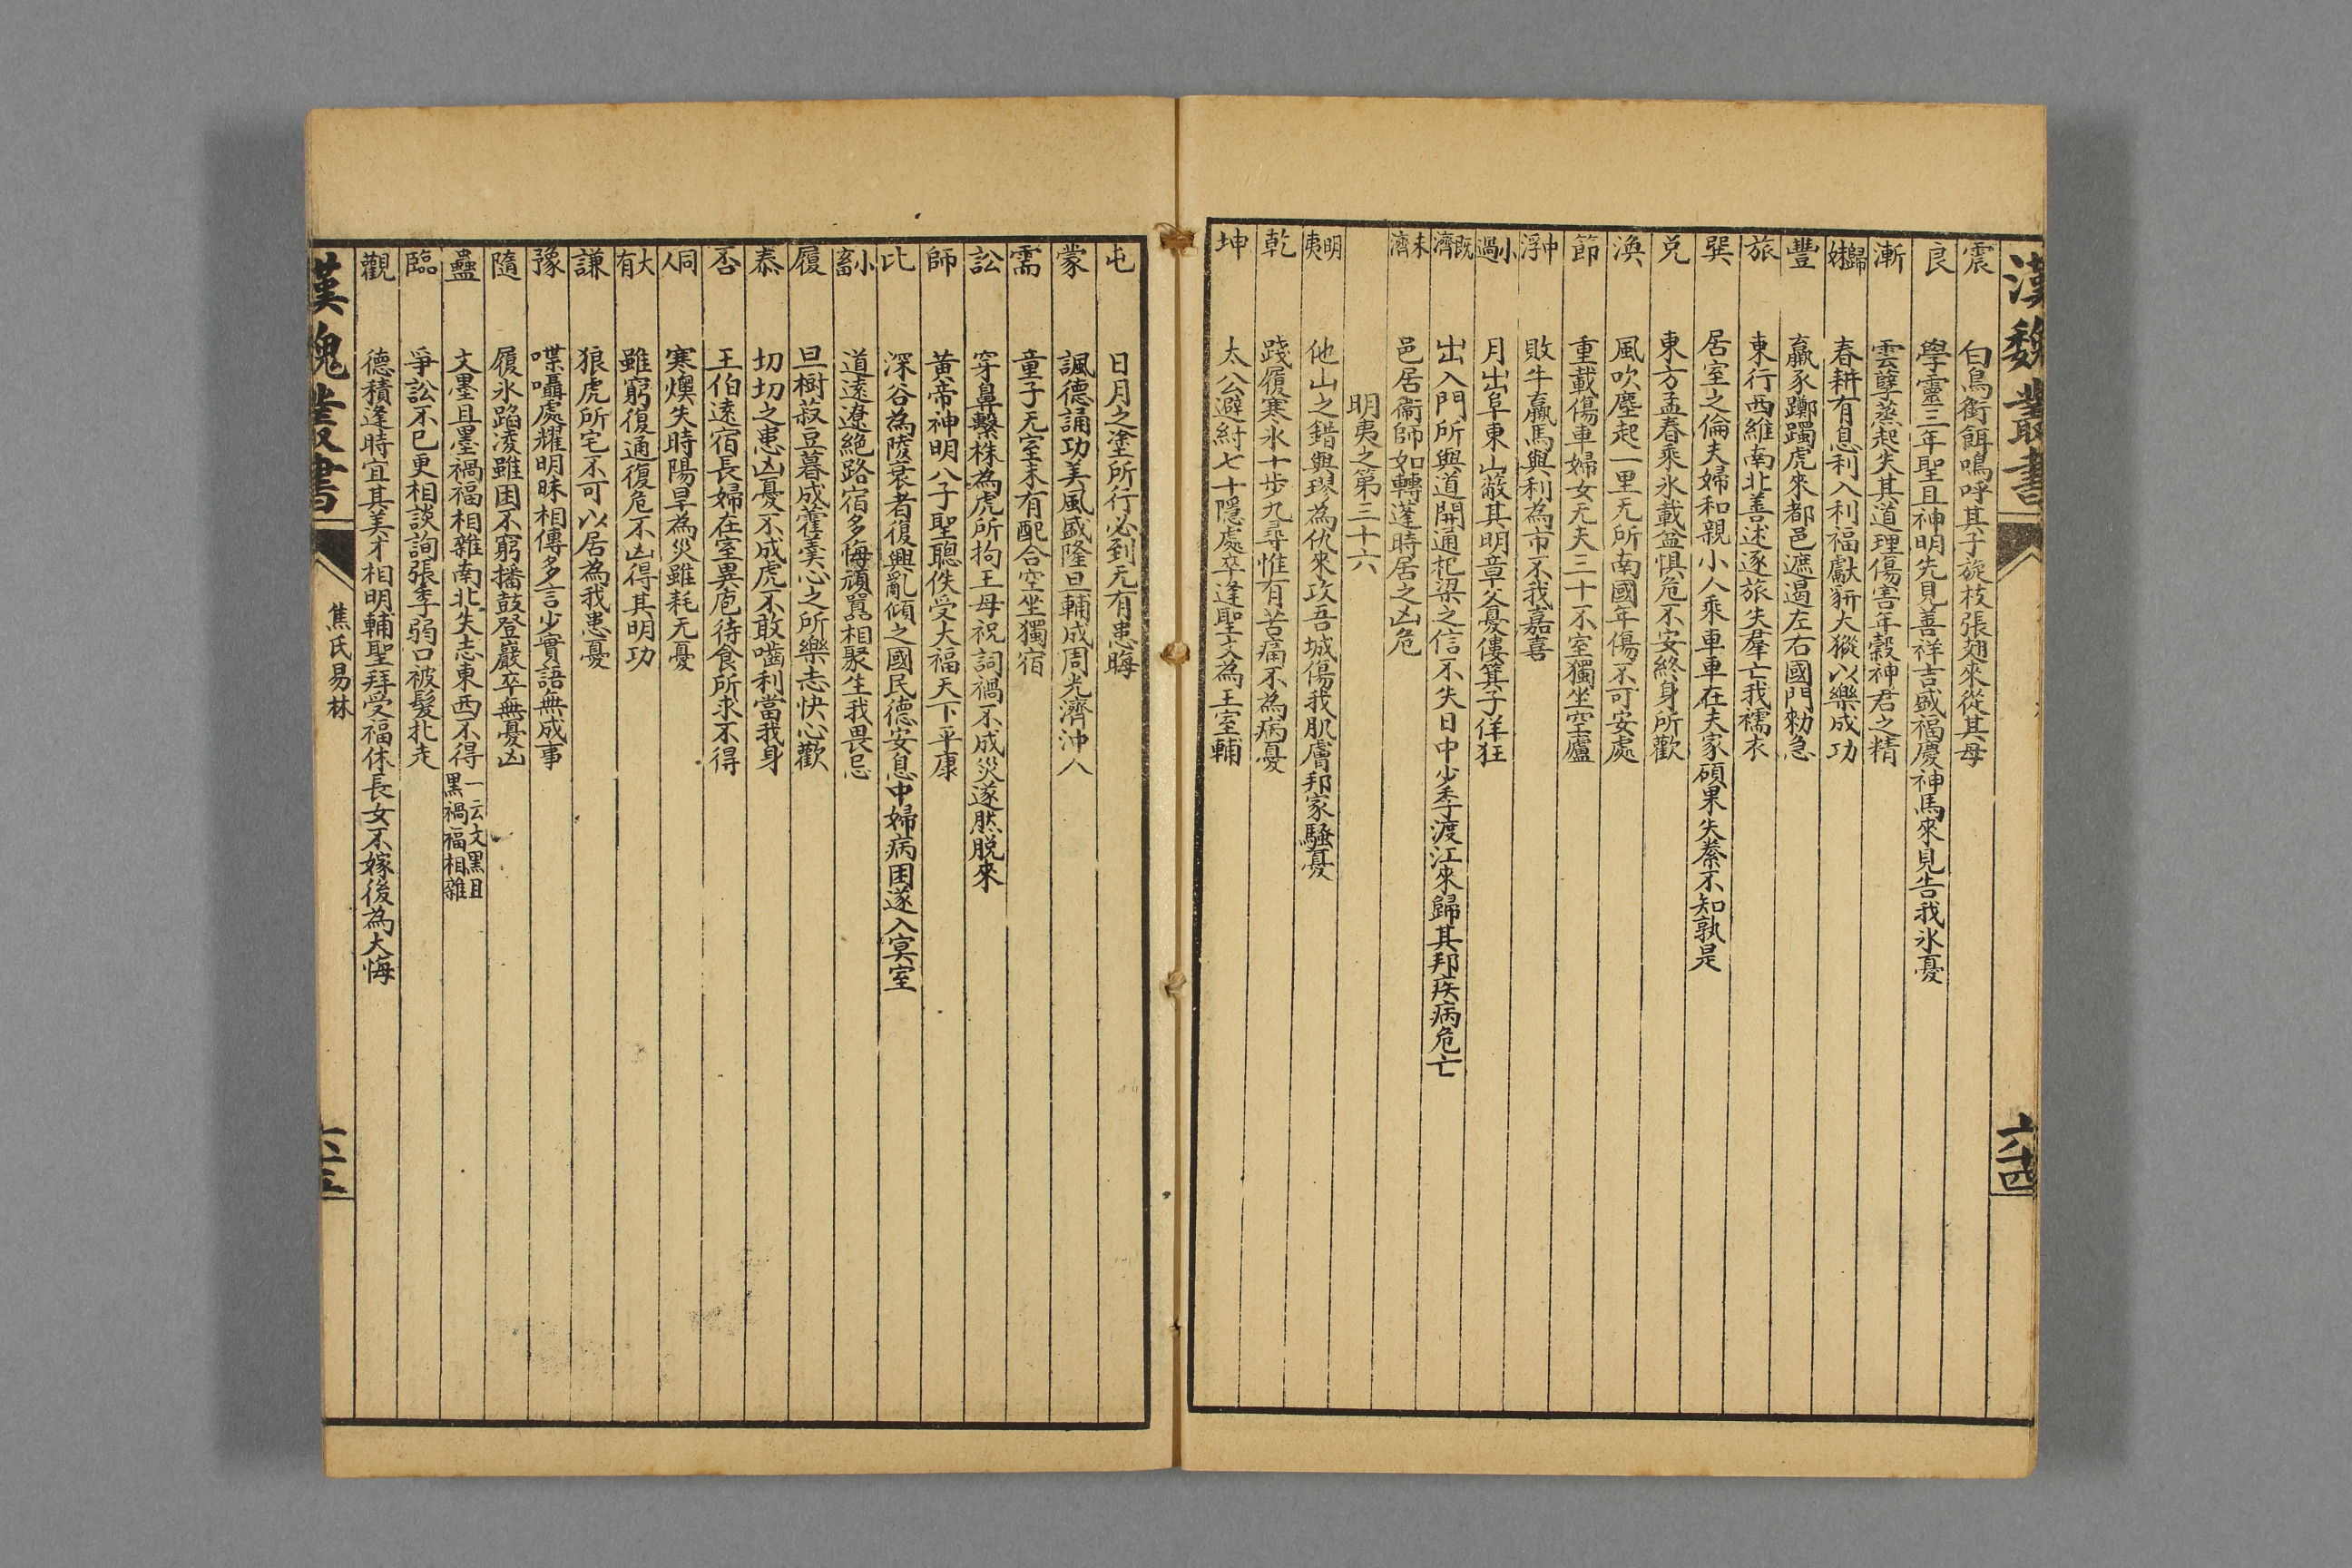 漢魏叢書
六十四
震 白鳥銜餌鳴呼其子旋枝張翅來從其母
艮 學靈三年聖且神明先見善祥吉盛福慶神馬來見告我氷憂
漸 雲孽蒸起失其道理傷害年穀神君之精
歸妹 春耕有息利入利福獻豣大豵以樂成功
豐 羸豕躑躅虎來都邑遮遏左右國門勑急
旅 東行西維南北善迷逐旅失羣亡我襦衣
巽 居室之倫夫婦和親小人乘車車在夫家碩果失藜不知孰是
兌 東方孟春乘氷載盆懼危不安終身所歡
渙 風吹塵起一里无所南國年傷不可安處
節 重載傷車婦女无夫三十不室獨坐空廬
中浮 敗牛羸馬與利為市不我嘉喜
小過 月出阜東山蔽其明章父憂僂箕子佯狂
既濟 出入門所與道開通杞梁之信不失日中少季渡江來歸其邦疾病危亡
未濟 邑居衞師如轉蓬時居之凶危
明夷之第三十六
明夷 他山之錯與璆為仇來攻吾城傷我肌膚邦家騷憂
乾 踐履寒氷十步九尋惟有苦痛不為病憂
坤 太公避紂七十隱處卒逢聖文為王室輔
屯 日月之塗所行必到无有患晦
蒙 諷德誦功美風盛隆旦輔成周光濟沖人
需 童子无室未有配合空坐獨宿
訟 穿鼻繫株為虎所拘王母祝詞禍不成災遂然脫來
師 黃帝神明八子聖聰佚受大福天下平康
比 深谷為陵衰者復興亂傾之國民德安息中婦病困遂入冥室
小畜 道遠遼絕路宿多悔頑嚚相聚生我畏忌
履 旦樹菽豆暮成藿羹心之所樂志快心歡
泰 切切之患凶憂不成虎不敢囓利當我身
否 王伯遠宿長婦在室異庖待食所求不得
同人 寒燠失時陽旱為災雖耗无憂
大有 雖窮復通復危不凶得其明功
謙 狼虎所宅不可以居為我患憂
豫 喋囁處耀明昧相傳多言少實語無成事
隨 履氷蹈淩雖困不窮播鼓登巖卒無憂凶
蠱 文墨且墨禍福相雜南北失志東西不得 一云文黑且黑禍福相雜
臨 爭訟不已更相談詢張季弱口被髮北走
觀 德積逢時宜其美才相明輔聖拜受福休長女不嫁後為大悔
漢魏叢書
焦氏易林
六十五